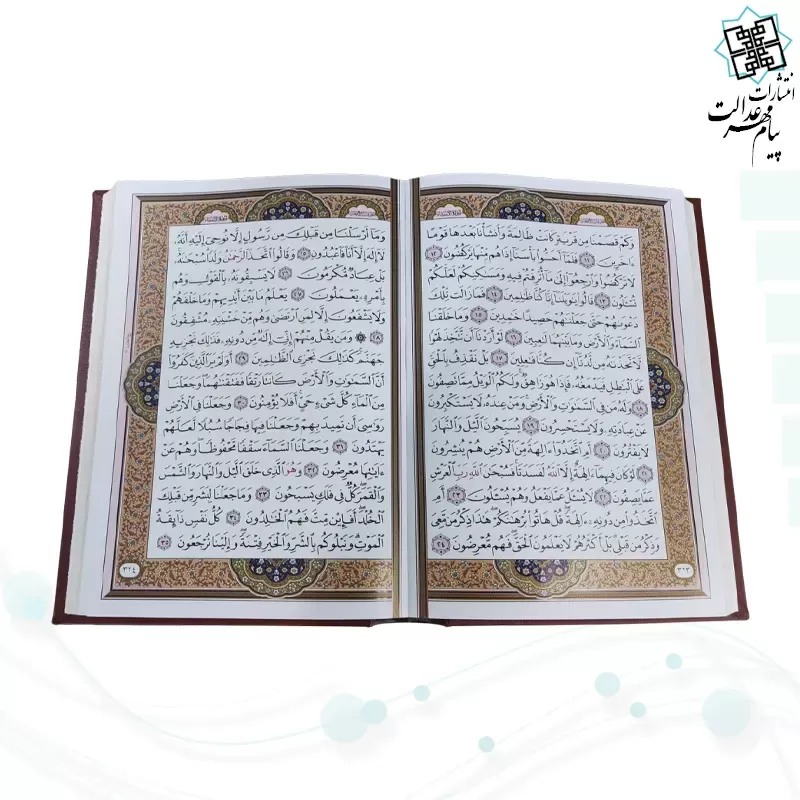 انتشارات
پیام مهر عدالت
وَكَمْ قَصَمْنَا مِن قَرْيَةٍ كَانَتْ ظَالِمَةً وَأَنشَأْنَا بَعْدَهَا قَوْمًا
ءَاخَرِينَ ١١ فَلَمَّا أَحَسُّوا بَأْسَنَا إِذَا هُم مِّنْهَا يَرْكُضُونَ ١٢
لَا تَرْكُضُوا وَارْجِعُوا إِلَىٰ مَا أُتْرِفْتُمْ فِيهِ وَمَسَٰكِنِكُمْ لَعَلَّكُمْ
تُسْـَٔلُونَ ١٣ قَالُوا يَٰوَيْلَنَا إِنَّا كُنَّا ظَٰلِمِينَ ١٤ فَمَا زَالَت تِّلْكَ
دَعْوَىٰهُمْ حَتَّىٰ جَعَلْنَٰهُمْ حَصِيدًا خَٰمِدِينَ ١٥ وَمَا خَلَقْنَا
السَّمَاءَ وَالْأَرْضَ وَمَا بَيْنَهُمَا لَٰعِبِينَ ١٦ لَوْ أَرَدْنَا أَن نَّتَّخِذَ لَهْوًا
لَّاتَّخَذْنَٰهُ مِن لَّدُنَّا إِن كُنَّا فَٰعِلِينَ ١٧ بَلْ نَقْذِفُ بِالْحَقِّ
عَلَى الْبَٰطِلِ فَيَدْمَغُهُ فَإِذَا هُوَ زَاهِقٌ وَلَكُمُ الْوَيْلُ مِمَّا تَصِفُونَ
١٨ وَلَهُ مَن فِي السَّمَٰوَٰتِ وَالْأَرْضِ وَمَنْ عِندَهُ لَا يَسْتَكْبِرُونَ
عَنْ عِبَادَتِهِ وَلَا يَسْتَحْسِرُونَ ١٩ يُسَبِّحُونَ الَّيْلَ وَالنَّهَارَ
لَا يَفْتُرُونَ ٢٠ أَمِ اتَّخَذُوا ءَالِهَةً مِّنَ الْأَرْضِ هُمْ يُنشِرُونَ
٢١ لَوْ كَانَ فِيهِمَا ءَالِهَةٌ إِلَّا اللَّهُ لَفَسَدَتَا فَسُبْحَٰنَ اللَّهِ رَبِّ الْعَرْشِ
عَمَّا يَصِفُونَ ٢٢ لَا يُسْـَٔلُ عَمَّا يَفْعَلُ وَهُمْ يُسْـَٔلُونَ ٢٣ أَمِ
اتَّخَذُوا مِن دُونِهِ ءَالِهَةً قُلْ هَاتُوا بُرْهَٰنَكُمْ هَٰذَا ذِكْرُ مَن مَّعِيَ
وَذِكْرُ مَن قَبْلِي بَلْ أَكْثَرُهُمْ لَا يَعْلَمُونَ الْحَقَّ فَهُم مُّعْرِضُونَ ٢٤
٣٢٣
وَمَا أَرْسَلْنَا مِن قَبْلِكَ مِن رَّسُولٍ إِلَّا نُوحِي إِلَيْهِ أَنَّهُ
لَا إِلَٰهَ إِلَّا أَنَا فَاعْبُدُونِ ٢٥ وَقَالُوا اتَّخَذَ الرَّحْمَٰنُ وَلَدًا سُبْحَٰنَهُ
بَلْ عِبَادٌ مُّكْرَمُونَ ٢٦ لَا يَسْبِقُونَهُ بِالْقَوْلِ وَهُم
بِأَمْرِهِ يَعْمَلُونَ ٢٧ يَعْلَمُ مَا بَيْنَ أَيْدِيهِمْ وَمَا خَلْفَهُمْ
وَلَا يَشْفَعُونَ إِلَّا لِمَنِ ارْتَضَىٰ وَهُم مِّنْ خَشْيَتِهِ مُشْفِقُونَ
٢٨ ۞ وَمَن يَقُلْ مِنْهُمْ إِنِّي إِلَٰهٌ مِّن دُونِهِ فَذَٰلِكَ نَجْزِيهِ
جَهَنَّمَ كَذَٰلِكَ نَجْزِي الظَّٰلِمِينَ ٢٩ أَوَلَمْ يَرَ الَّذِينَ كَفَرُوا
أَنَّ السَّمَٰوَٰتِ وَالْأَرْضَ كَانَتَا رَتْقًا فَفَتَقْنَٰهُمَا وَجَعَلْنَا
مِنَ الْمَاءِ كُلَّ شَيْءٍ حَيٍّ أَفَلَا يُؤْمِنُونَ ٣٠ وَجَعَلْنَا فِي الْأَرْضِ
رَوَٰسِيَ أَن تَمِيدَ بِهِمْ وَجَعَلْنَا فِيهَا فِجَاجًا سُبُلًا لَّعَلَّهُمْ
يَهْتَدُونَ ٣١ وَجَعَلْنَا السَّمَاءَ سَقْفًا مَّحْفُوظًا وَهُمْ عَنْ
ءَايَٰتِهَا مُعْرِضُونَ ٣٢ وَهُوَ الَّذِي خَلَقَ الَّيْلَ وَالنَّهَارَ وَالشَّمْسَ
وَالْقَمَرَ كُلٌّ فِي فَلَكٍ يَسْبَحُونَ ٣٣ وَمَا جَعَلْنَا لِبَشَرٍ مِّن قَبْلِكَ
الْخُلْدَ أَفَإِي۟ن مِّتَّ فَهُمُ الْخَٰلِدُونَ ٣٤ كُلُّ نَفْسٍ ذَائِقَةُ
الْمَوْتِ وَنَبْلُوكُم بِالشَّرِّ وَالْخَيْرِ فِتْنَةً وَإِلَيْنَا تُرْجَعُونَ ٣٥
٣٢٤